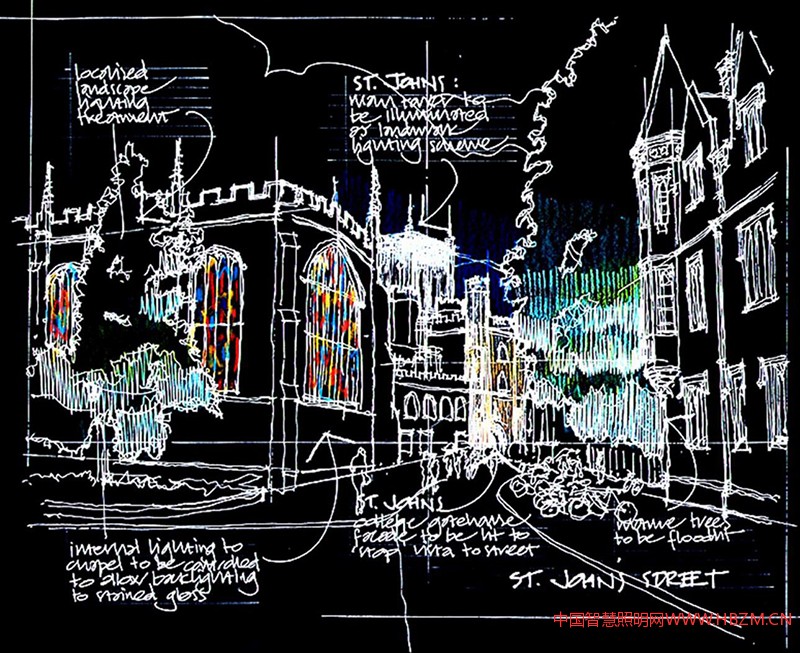 localised
landscape
lighting
treatment
ST. JOHNS:
main tower to
be illuminated
as landmark
lighting scheme
internal lighting to
chapel to be controlled
to allow backlighting
to stained glass
ST. JOHNS
college gatehouse
facade to be lit to
stop vista to street
mature trees
to be floodlit
ST. JOHN'S STREET
中国智慧照明网WWW.HBZM.CN